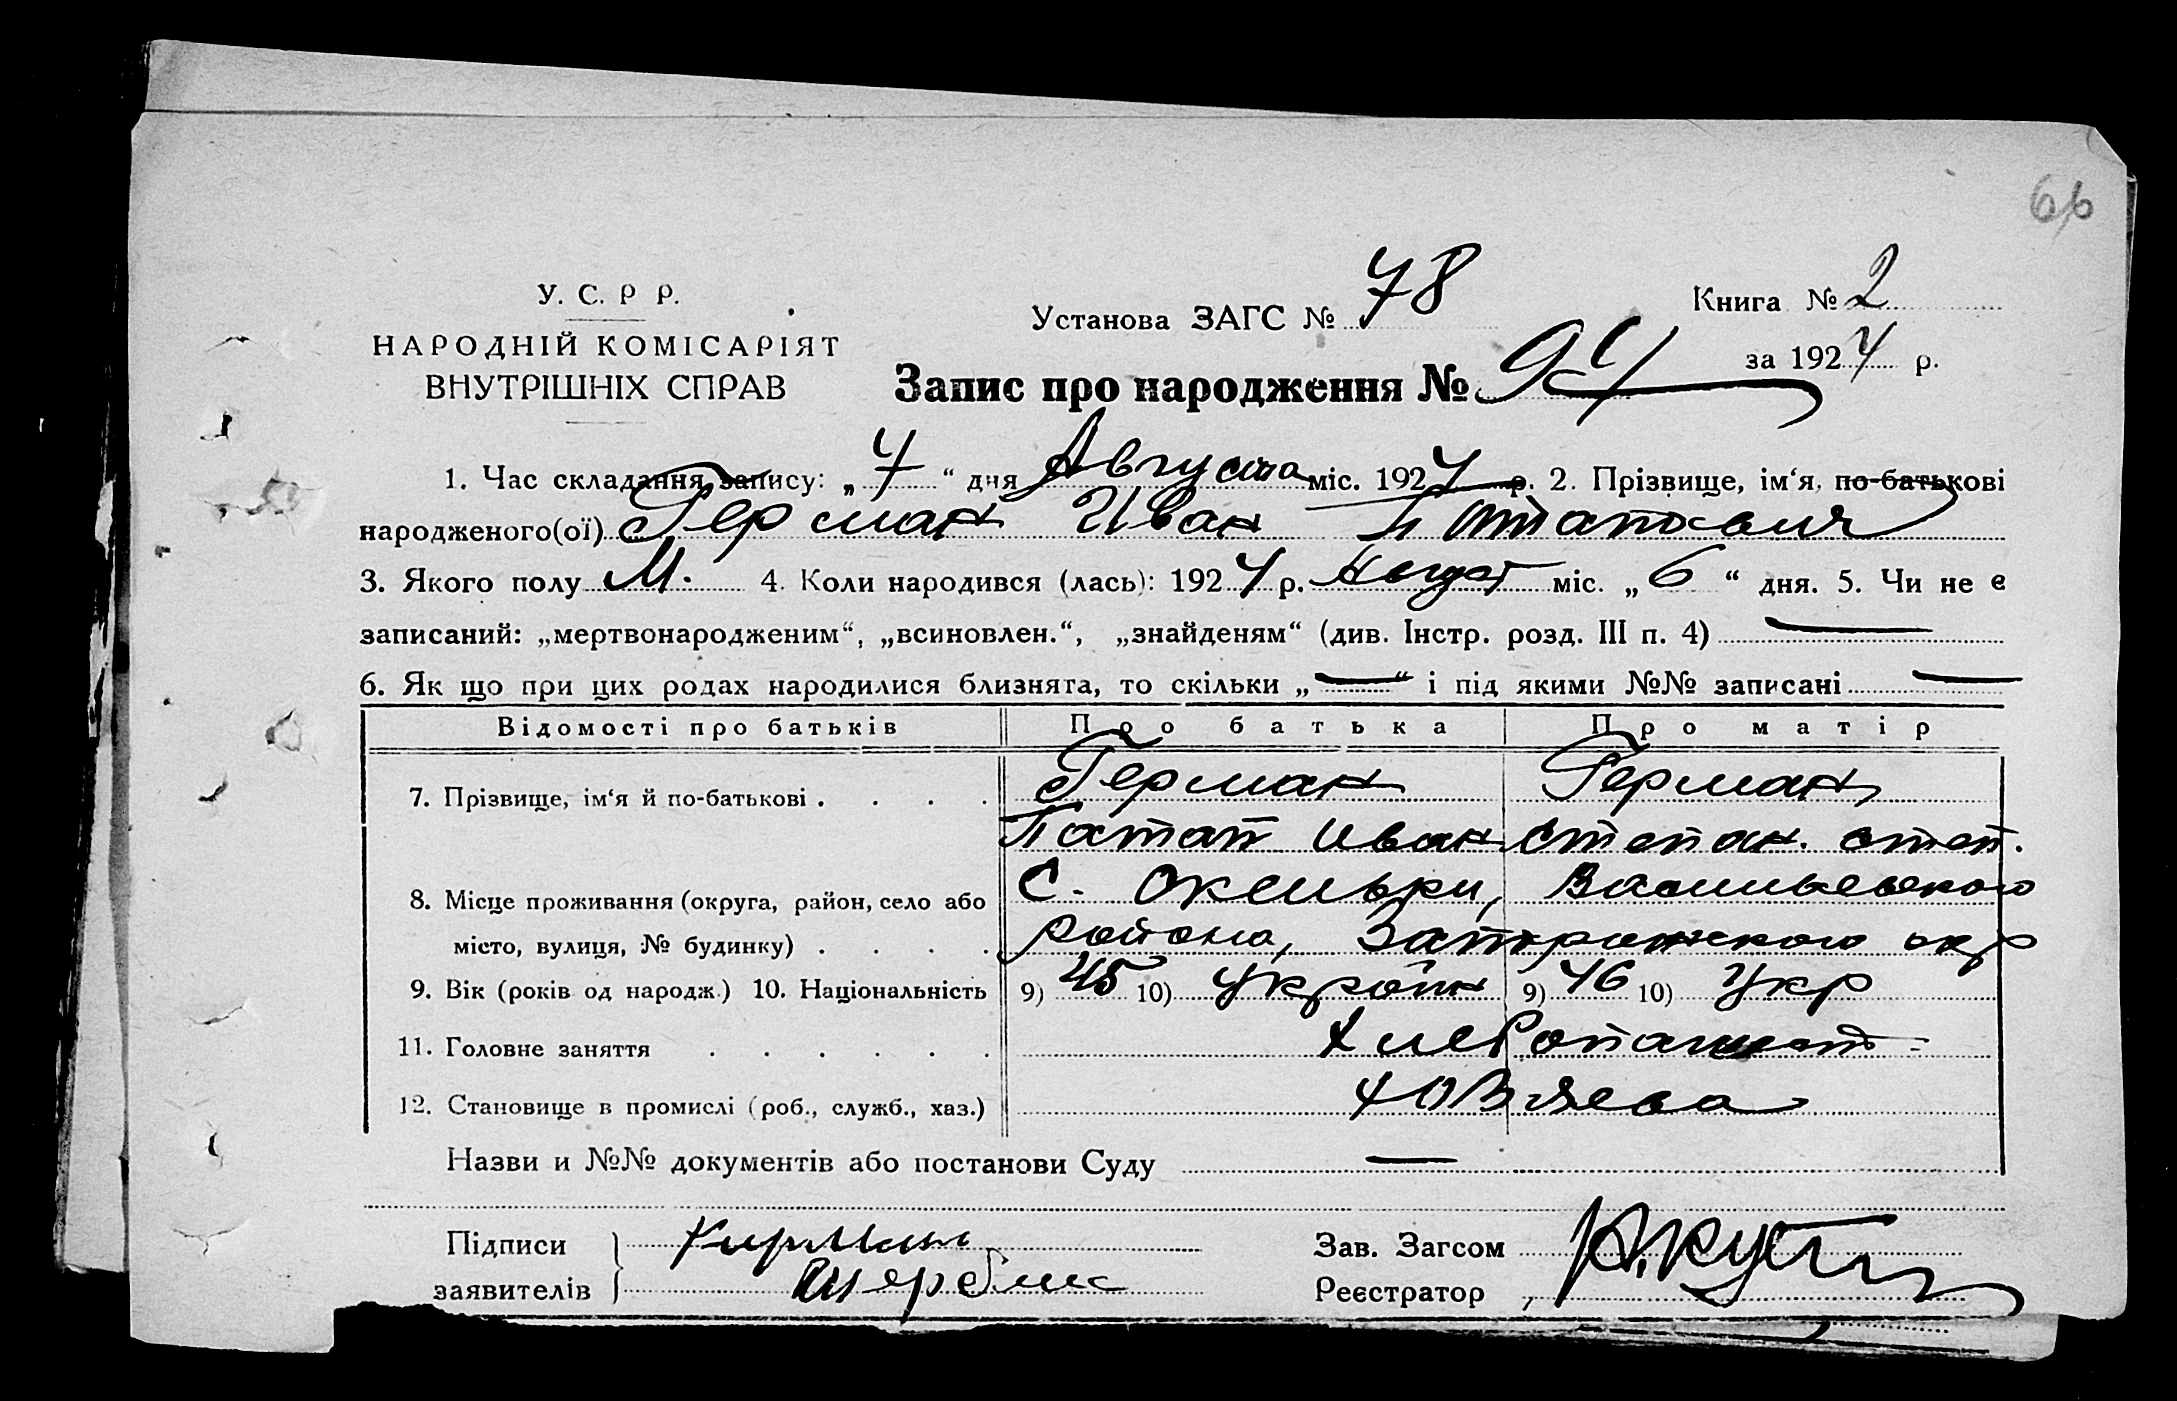 66
У. С. Р Р.
НАРОДНІЙ КОМІСАРІЯТ
ВНУТРІШНІХ СПРАВ
Установа ЗАГС № 78
Книга № 2
за 1924 р.
Запис про народження № 94
1. Час складання запису: „ 7 “ дня Августа міс. 1924 р. 2. Прізвище, ім‘я, по-батькові
народженого(ої) Герман Иван Потапович
3. Якого полу М. 4. Коли народився (лась): 1924 р. Август міс. „ 6 “ дня. 5. Чи не є
записаний: „мертвонародженим“, „всиновлен.“, „знайденям“ (див. Інстр. розд. III п. 4) —
6. Як що при цих родах народилися близнята, то скільки „ — “ і під якими №№ записані —
Відомості про батьків Про батька Про матір
7. Прізвище, ім‘я й по-батькові . . . . Герман Герман
Патап Иван Степан. степ.
8. Місце проживання (округа, район, село або С. Васильевского
місто, вулиця, № будинку) . . . . района, Запорожского окр
9. Вік (років од народж.) 10. Національність 9) 45 10) Украин 9) 46 10) Укр
11. Головне заняття . . . . . . Хлебопашест
12. Становище в промислі (роб., служб., хаз.)
Назви и №№ документів або постанови Суду —
Підписи
заявителів
Зав. Загсом
Реєстратор